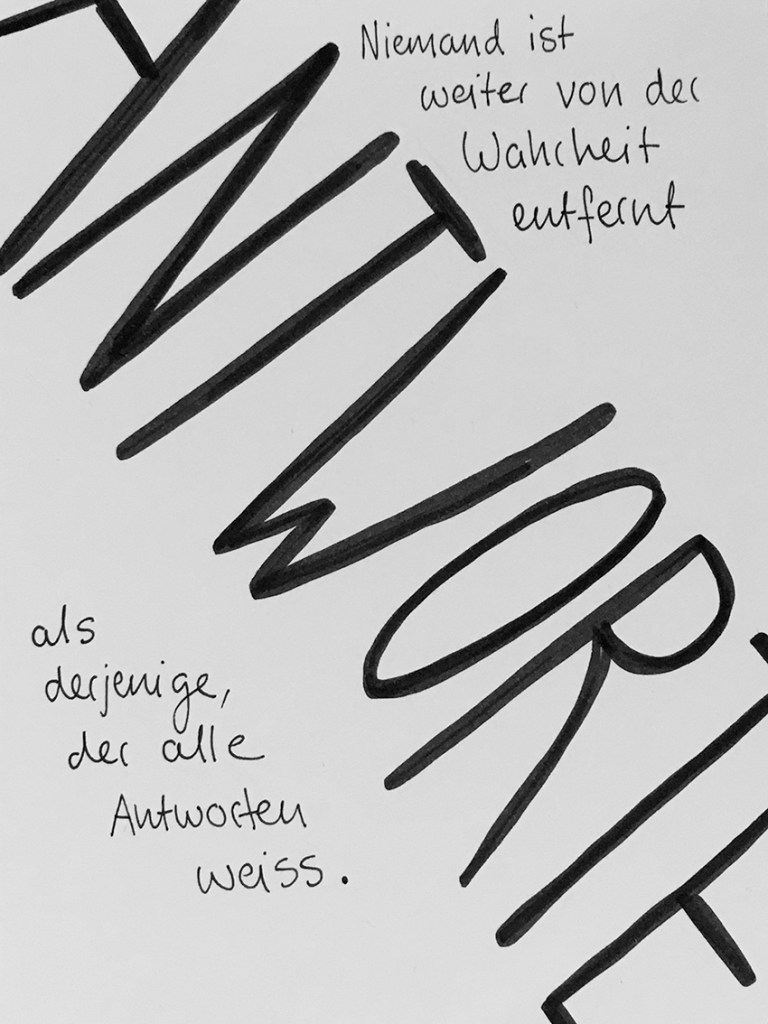 Niemand ist
weiter von der
Wahrheit
entfernt
ANTWORTE
als
derjenige,
der alle
Antworten
weiss.